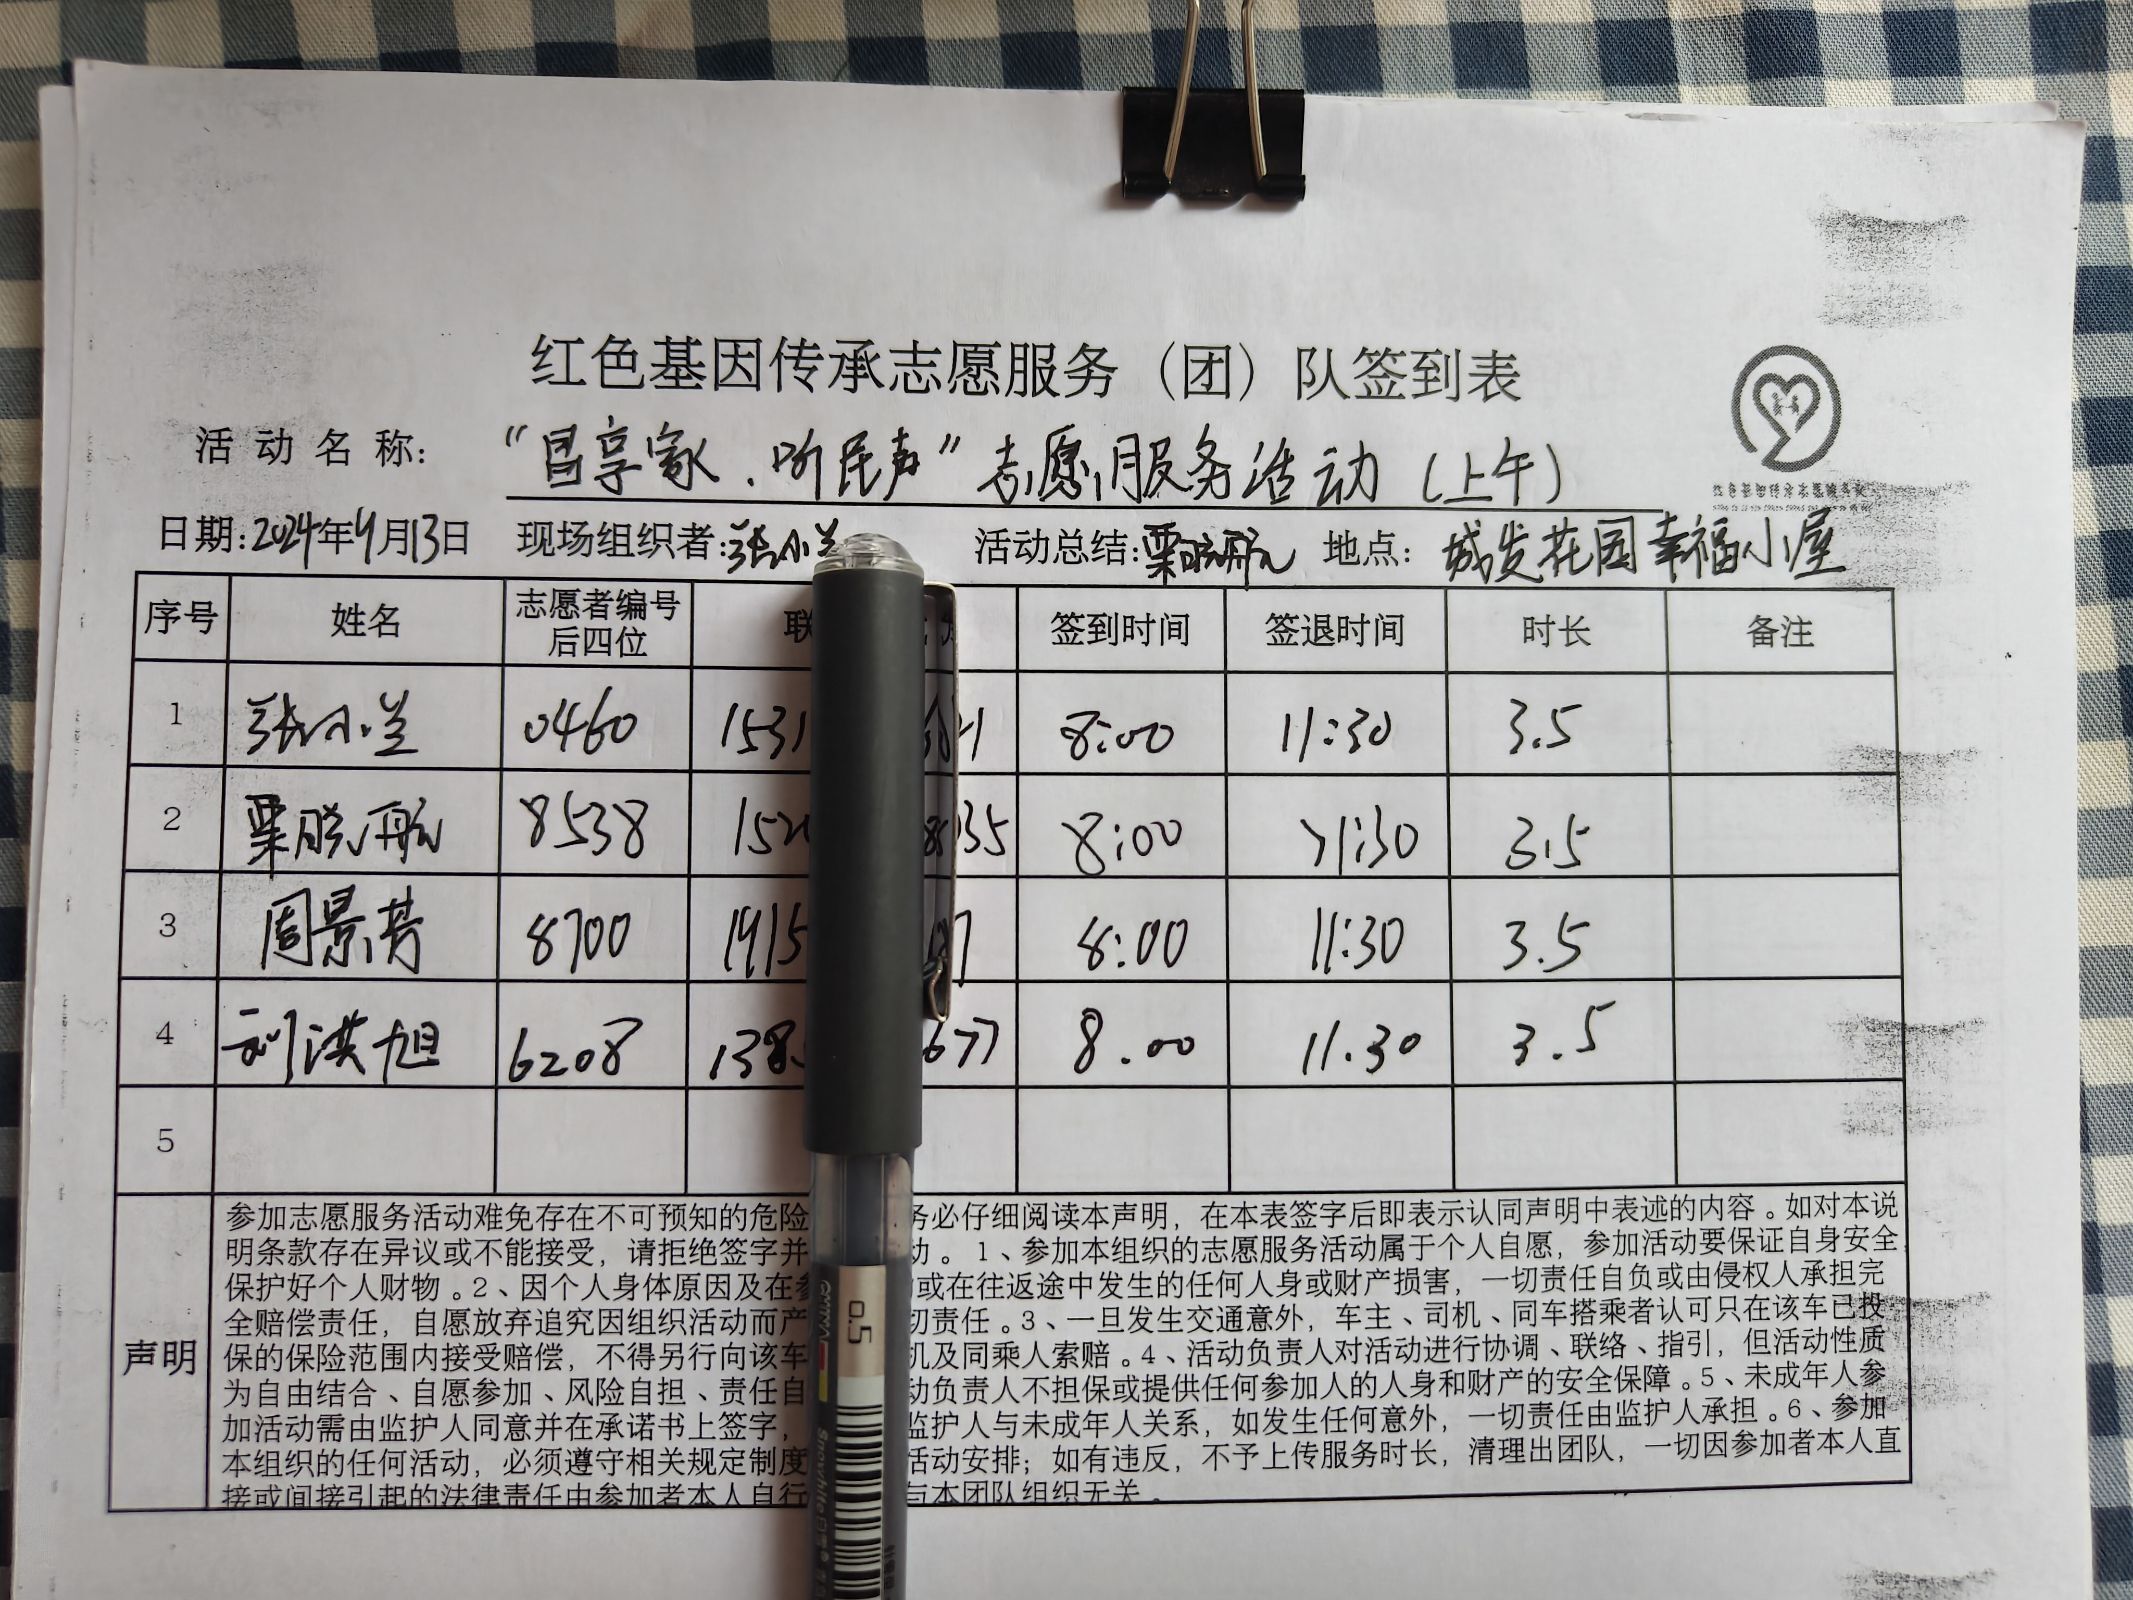 红色基因传承志愿服务（团）队签到表
活动名称：“昌享家、听民声”志愿服务活动（上午）
日期:2024年4月13日 现场组织者:张小兰 活动总结:栗晓航 地点：城发花园幸福小屋
序号 姓名 志愿者编号后四位 联 签到时间 签退时间 时长 备注
1 张小兰 0460 1531 8:00 11:30 3.5
2 栗晓航 8538 152 35 8:00 11:30 3.5
3 周景芳 8700 1915 7 8:00 11:30 3.5
4 刘洪旭 6208 138 677 8.00 11.30 3.5
5
声明
参加志愿服务活动难免存在不可预知的危险 务必仔细阅读本声明，在本表签字后即表示认同声明中表述的内容。如对本说
明条款存在异议或不能接受，请拒绝签字并 动。1、参加本组织的志愿服务活动属于个人自愿，参加活动要保证自身安全
保护好个人财物。2、因个人身体原因及在参 或在往返途中发生的任何人身或财产损害，一切责任自负或由侵权人承担完
全赔偿责任，自愿放弃追究因组织活动而产 切责任。3、一旦发生交通意外，车主、司机、同车搭乘者认可只在该车已投
保的保险范围内接受赔偿，不得另行向该车 机及同乘人索赔。4、活动负责人对活动进行协调、联络、指引，但活动性质
为自由结合、自愿参加、风险自担、责任自 动负责人不担保或提供任何参加人的人身和财产的安全保障。5、未成年人参
加活动需由监护人同意并在承诺书上签字， 监护人与未成年人关系，如发生任何意外，一切责任由监护人承担。6、参加
本组织的任何活动，必须遵守相关规定制度 活动安排；如有违反，不予上传服务时长，清理出团队，一切因参加者本人直
接或间接引起的法律责任由参加者本人自行 与本团队组织无关。
0.5
Snowhite